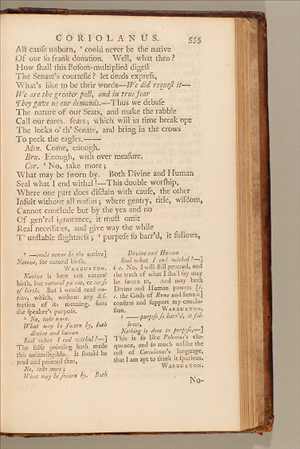 CORIOLANUS. 555
All cauſe unborn, ' could never be the native
Of our ſo frank donation. Well, what then?
How ſhall this Boſom-multiplied digeſt
The Senate's courteſie? let deeds expreſs,
What's like to be their words—We did requeſt it—
We are the greater poll, and in true fear
They gave us our demands.—Thus we debaſe
The nature of our Seats, and make the rabble
Call our cares, fears; which will in time break ope
The locks o' th' Senate, and bring in the crows
To peck the eagles.—
Men. Come, enough.
Bru. Enough, with over meaſure.
Cor. No, take more;
What may be ſworn by. Both Divine and Human
Seal what I end withal!—This double worſhip,
Where one part does diſdain with cauſe, the other
Inſult without all reaſon; where gentry, title, wiſdom,
Cannot conclude but by the yea and no
Of gen'ral ignorance, it muſt omit
Real neceſſities, and give way the while
T' unſtable ſlightneſs; purpoſe ſo barr'd, it follows,
—could never be the native]
Native, for natural birth.
WARBURTON.
Native is here not natural
birth, but natural parent, or cauſe
of birth. But I would read mo-
tive, which, without any diſ-
tortion of its meaning, ſuits
the ſpeaker's purpoſe.
No, take more;
What may be ſworn by, both
divine and human
Seal what I end withal!—]
The falſe pointing hath made
this unintelligible. It ſhould be
read and pointed thus,
No, take more;
What may be ſworn by. Both
Divine and Human
Seal what I end withal!—]
i. e. No, I will ſtill proceed, and
the truth of what I ſhall ſay may
be ſworn to. And may both
Divine and Human powers [i.
e. the Gods of Rome and Senate]
confirm and ſupport my conclu-
ſion. WARBURTON.
—purpoſe ſo barr'd, it fol-
lows,
Nothing is done to purpoſe,—]
This is ſo like Polonius's elo-
quence, and ſo much unlike the
reſt of Coriolanus's language,
that I am apt to think it ſpurious.
WARBURTON.
No-